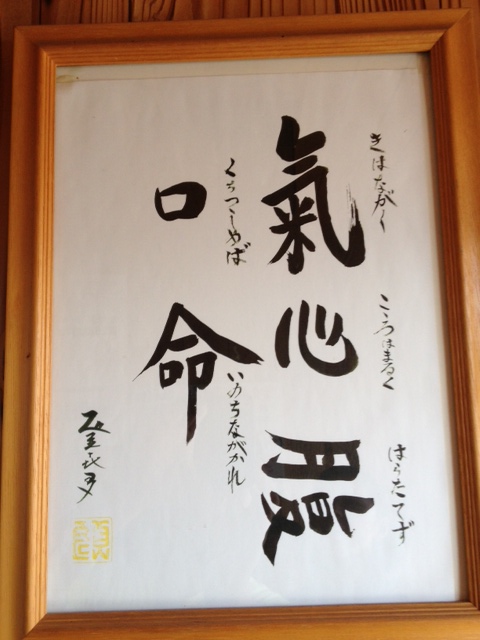 きはながく
こころはまるく
はらたてず
氣心腹
くちつゝしめば
いのちながかれ
口命